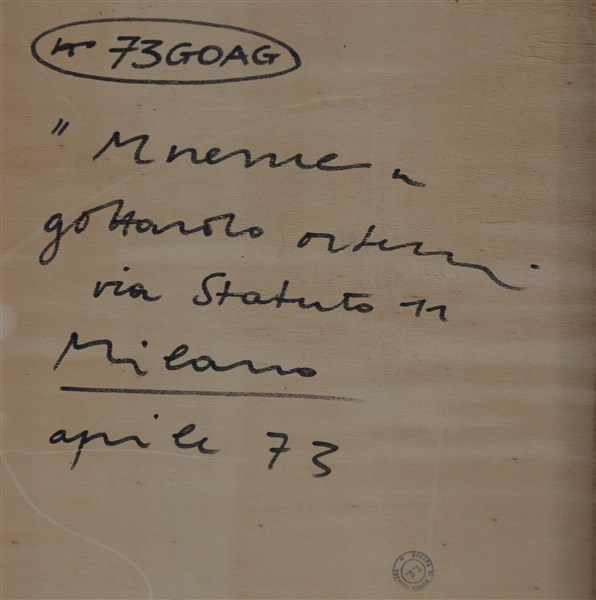 n° 73GOAG
"Mneme"
gottardo ortelli
via Statuto 11
Milano
aprile 73